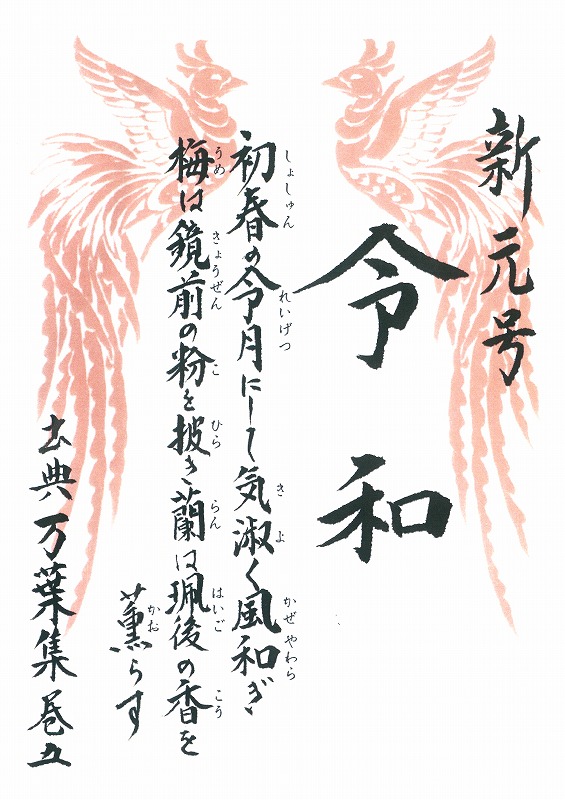 新元号
令和
しょしゅん れいげつ き よ かぜやわら
初春の令月にして気淑く風和ぎ
うめ きょうぜん こ ひら らん はいご こう
梅は鏡前の粉を披き蘭は珮後の香を
かお
薫らす
出典万葉集巻五